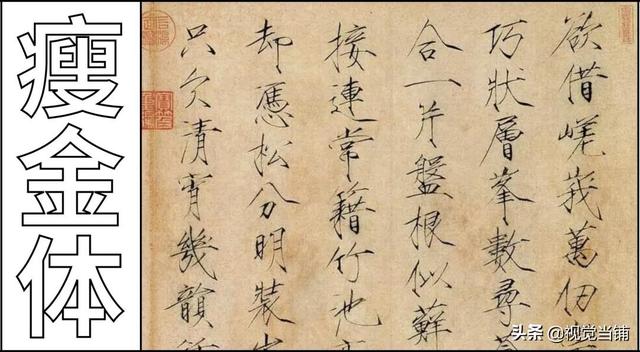 瘦金体
欲借嵯峩萬仞
巧狀層峯數尋
合一片盤根似蘚
接連常籍竹池
却憑松分明裝
只欠清宵幾韻
头条 @视觉当铺